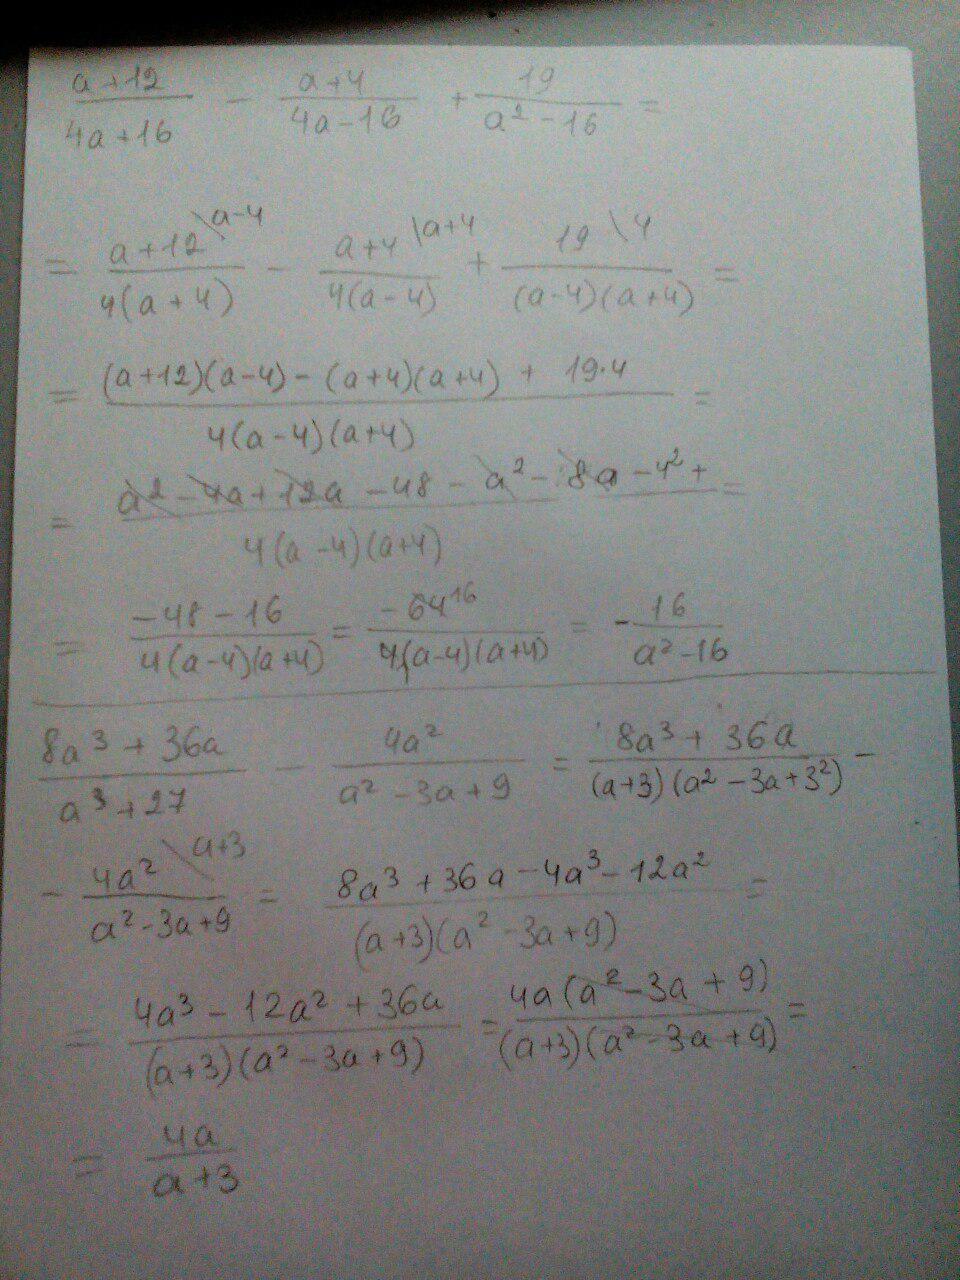 (a+12)/(4a+16) - (a+4)/(4a-16) + 19/(a²-16) =
= (a+12)/(4(a+4)) \a-4 - (a+4)/(4(a-4)) \a+4 + 19/((a-4)(a+4)) \4 =
= ((a+12)(a-4) - (a+4)(a+4) + 19·4)/(4(a-4)(a+4)) =
= (a² - 4a + 12a - 48 - a² - 8a - 4² +)/(4(a-4)(a+4)) =
= (-48 - 16)/(4(a-4)(a+4)) = (-64 16)/(4(a-4)(a+4)) = - 16/(a²-16)
(8a³ + 36a)/(a³ + 27) - 4a²/(a² - 3a + 9) = (8a³ + 36a)/((a+3)(a² - 3a + 3²)) -
- 4a²/(a² - 3a + 9) \a+3 = (8a³ + 36a - 4a³ - 12a²)/((a+3)(a² - 3a + 9)) =
= (4a³ - 12a² + 36a)/((a+3)(a² - 3a + 9)) = 4a(a² - 3a + 9)/((a+3)(a² - 3a + 9)) =
= 4a/(a+3)